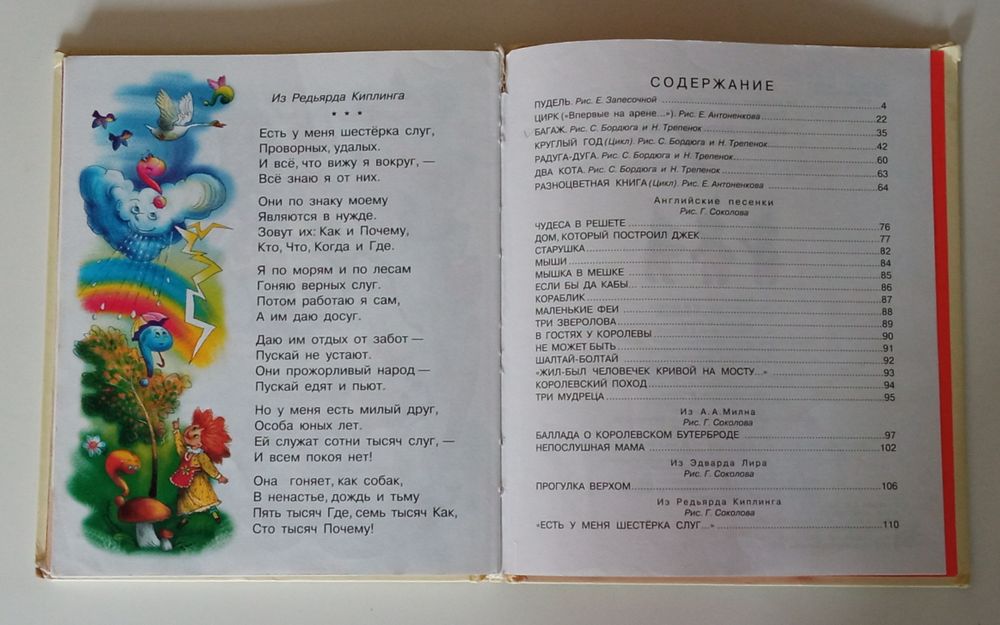 Из Редьярда Киплинга
* * *
Есть у меня шестёрка слуг,
Проворных, удалых.
И всё, что вижу я вокруг, —
Всё знаю я от них.
Они по знаку моему
Являются в нужде.
Зовут их: Как и Почему,
Кто, Что, Когда и Где.
Я по морям и по лесам
Гоняю верных слуг.
Потом работаю я сам,
А им даю досуг.
Даю им отдых от забот —
Пускай не устают.
Они прожорливый народ —
Пускай едят и пьют.
Но у меня есть милый друг,
Особа юных лет.
Ей служат сотни тысяч слуг, —
И всем покоя нет!
Она гоняет, как собак,
В ненастье, дождь и тьму
Пять тысяч Где, семь тысяч Как,
Сто тысяч Почему!
СОДЕРЖАНИЕ
ПУДЕЛЬ. Рис. Е. Запесочной 4
ЦИРК («Впервые на арене...»). Рис. Е. Антоненкова 22
БАГАЖ. Рис. С. Бордюга и Н. Трепенок 35
КРУГЛЫЙ ГОД (Цикл). Рис. С. Бордюга и Н. Трепенок 42
РАДУГА-ДУГА. Рис. С. Бордюга и Н. Трепенок 60
ДВА КОТА. Рис. С. Бордюга и Н. Трепенок 63
РАЗНОЦВЕТНАЯ КНИГА (Цикл). Рис. Е. Антоненкова 64
Английские песенки
Рис. Г. Соколова
ЧУДЕСА В РЕШЕТЕ 76
ДОМ, КОТОРЫЙ ПОСТРОИЛ ДЖЕК 77
СТАРУШКА 82
МЫШИ 84
МЫШКА В МЕШКЕ 85
ЕСЛИ БЫ ДА КАБЫ... 86
КОРАБЛИК 87
МАЛЕНЬКИЕ ФЕИ 88
ТРИ ЗВЕРОЛОВА 89
В ГОСТЯХ У КОРОЛЕВЫ 90
НЕ МОЖЕТ БЫТЬ 91
ШАЛТАЙ-БОЛТАЙ 92
«ЖИЛ-БЫЛ ЧЕЛОВЕЧЕК КРИВОЙ НА МОСТУ...» 93
КОРОЛЕВСКИЙ ПОХОД 94
ТРИ МУДРЕЦА 95
Из А.А.Милна
Рис. Г. Соколова
БАЛЛАДА О КОРОЛЕВСКОМ БУТЕРБРОДЕ 97
НЕПОСЛУШНАЯ МАМА 102
Из Эдварда Лира
Рис. Г. Соколова
ПРОГУЛКА ВЕРХОМ 106
Из Редьярда Киплинга
Рис. Г. Соколова
«ЕСТЬ У МЕНЯ ШЕСТЁРКА СЛУГ...» 110